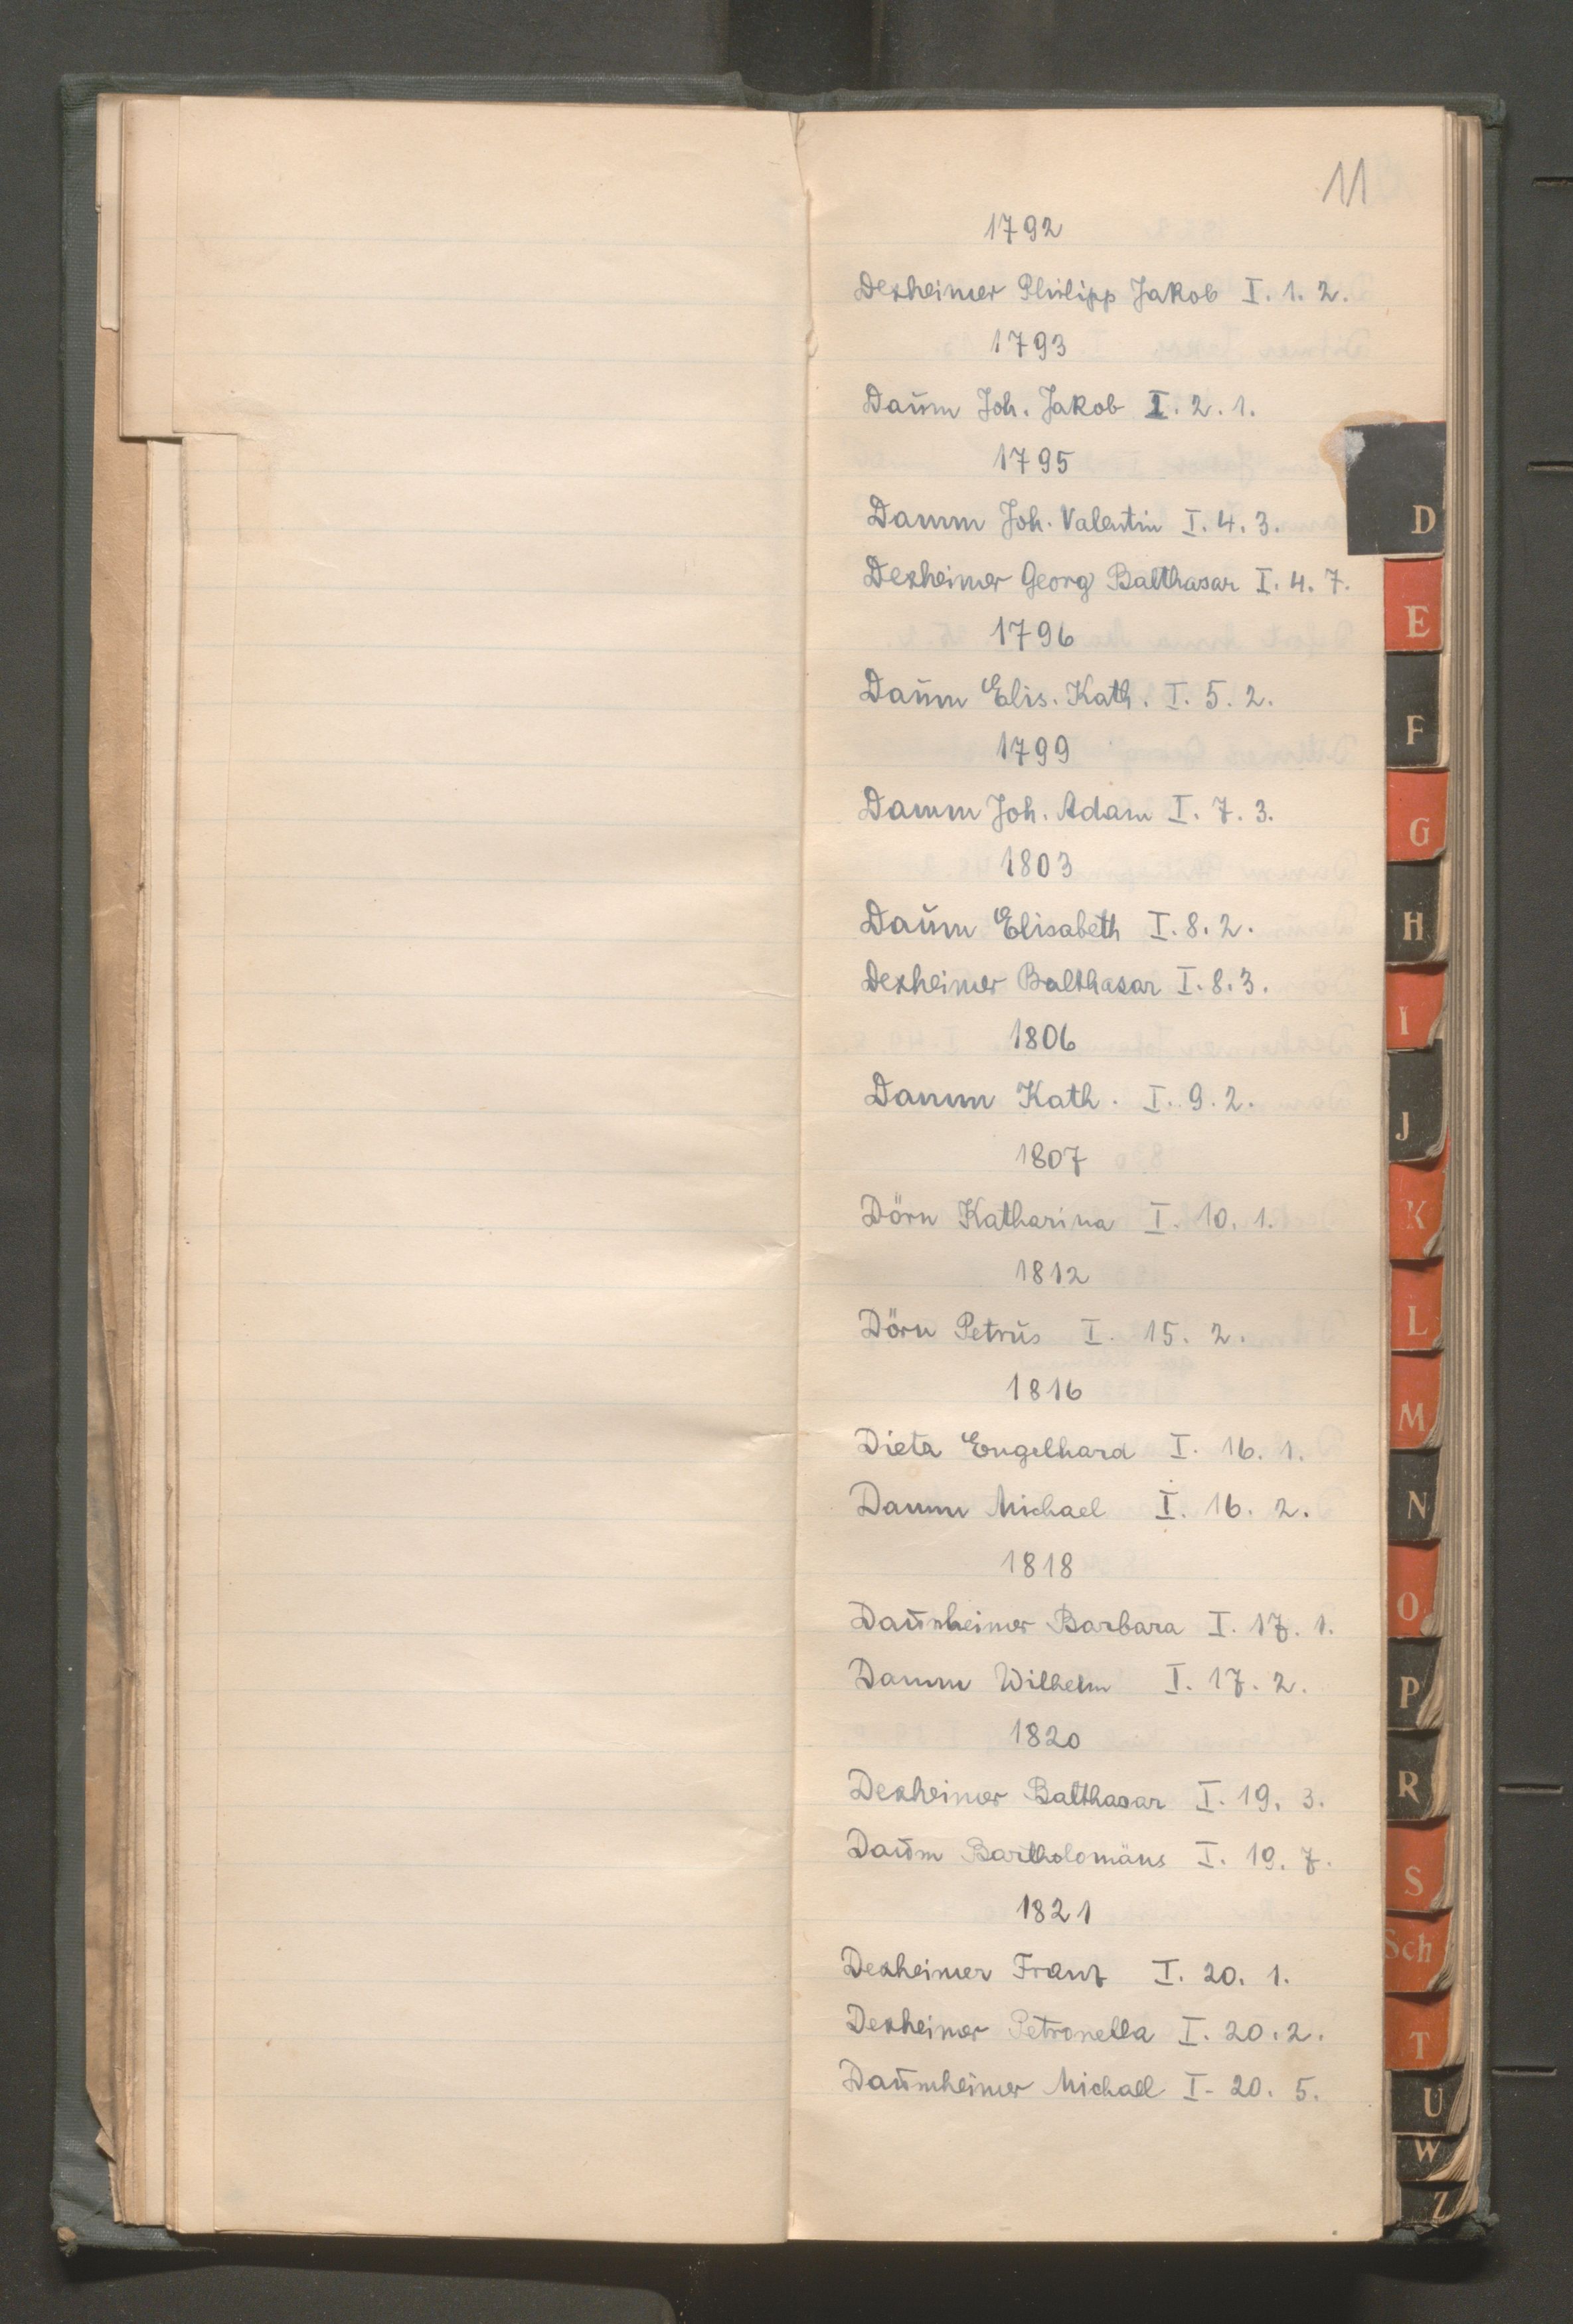 11
1792
Dexheimer Philipp Jakob I. 1. 2.
1793
Daum Joh. Jakob I. 2. 1.
1795
Damm Joh. Valentin I. 4. 3.
Dexheimer Georg Balthasar I. 4. 7.
1796
Daum Elis. Kath. I. 5. 2.
1799
Damm Joh. Adam I. 7. 3.
1803
Daum Elisabeth I. 8. 2.
Dexheimer Balthasar I. 8. 3.
1806
Damm Kath. I. 9. 2.
1807
Dörn Katharina I. 10. 1.
1812
Dörn Petrus I. 15. 2.
1816
Engelhard I. 16. 1.
Damm Michael I. 16. 2.
1818
Barbara I. 17. 1.
Damm Wilhelm I. 17. 2.
1820
Dexheimer Balthasar I. 19. 3.
Daum Bartholomäus I. 19. 7.
1821
Dexheimer Franz I. 20. 1.
Dexheimer Petronella I. 20. 2.
Daumheimer Michael I. 20. 5.
D
E
F
G
H
I
J
K
L
M
N
O
P
R
S
Sch
T
U
W
Z